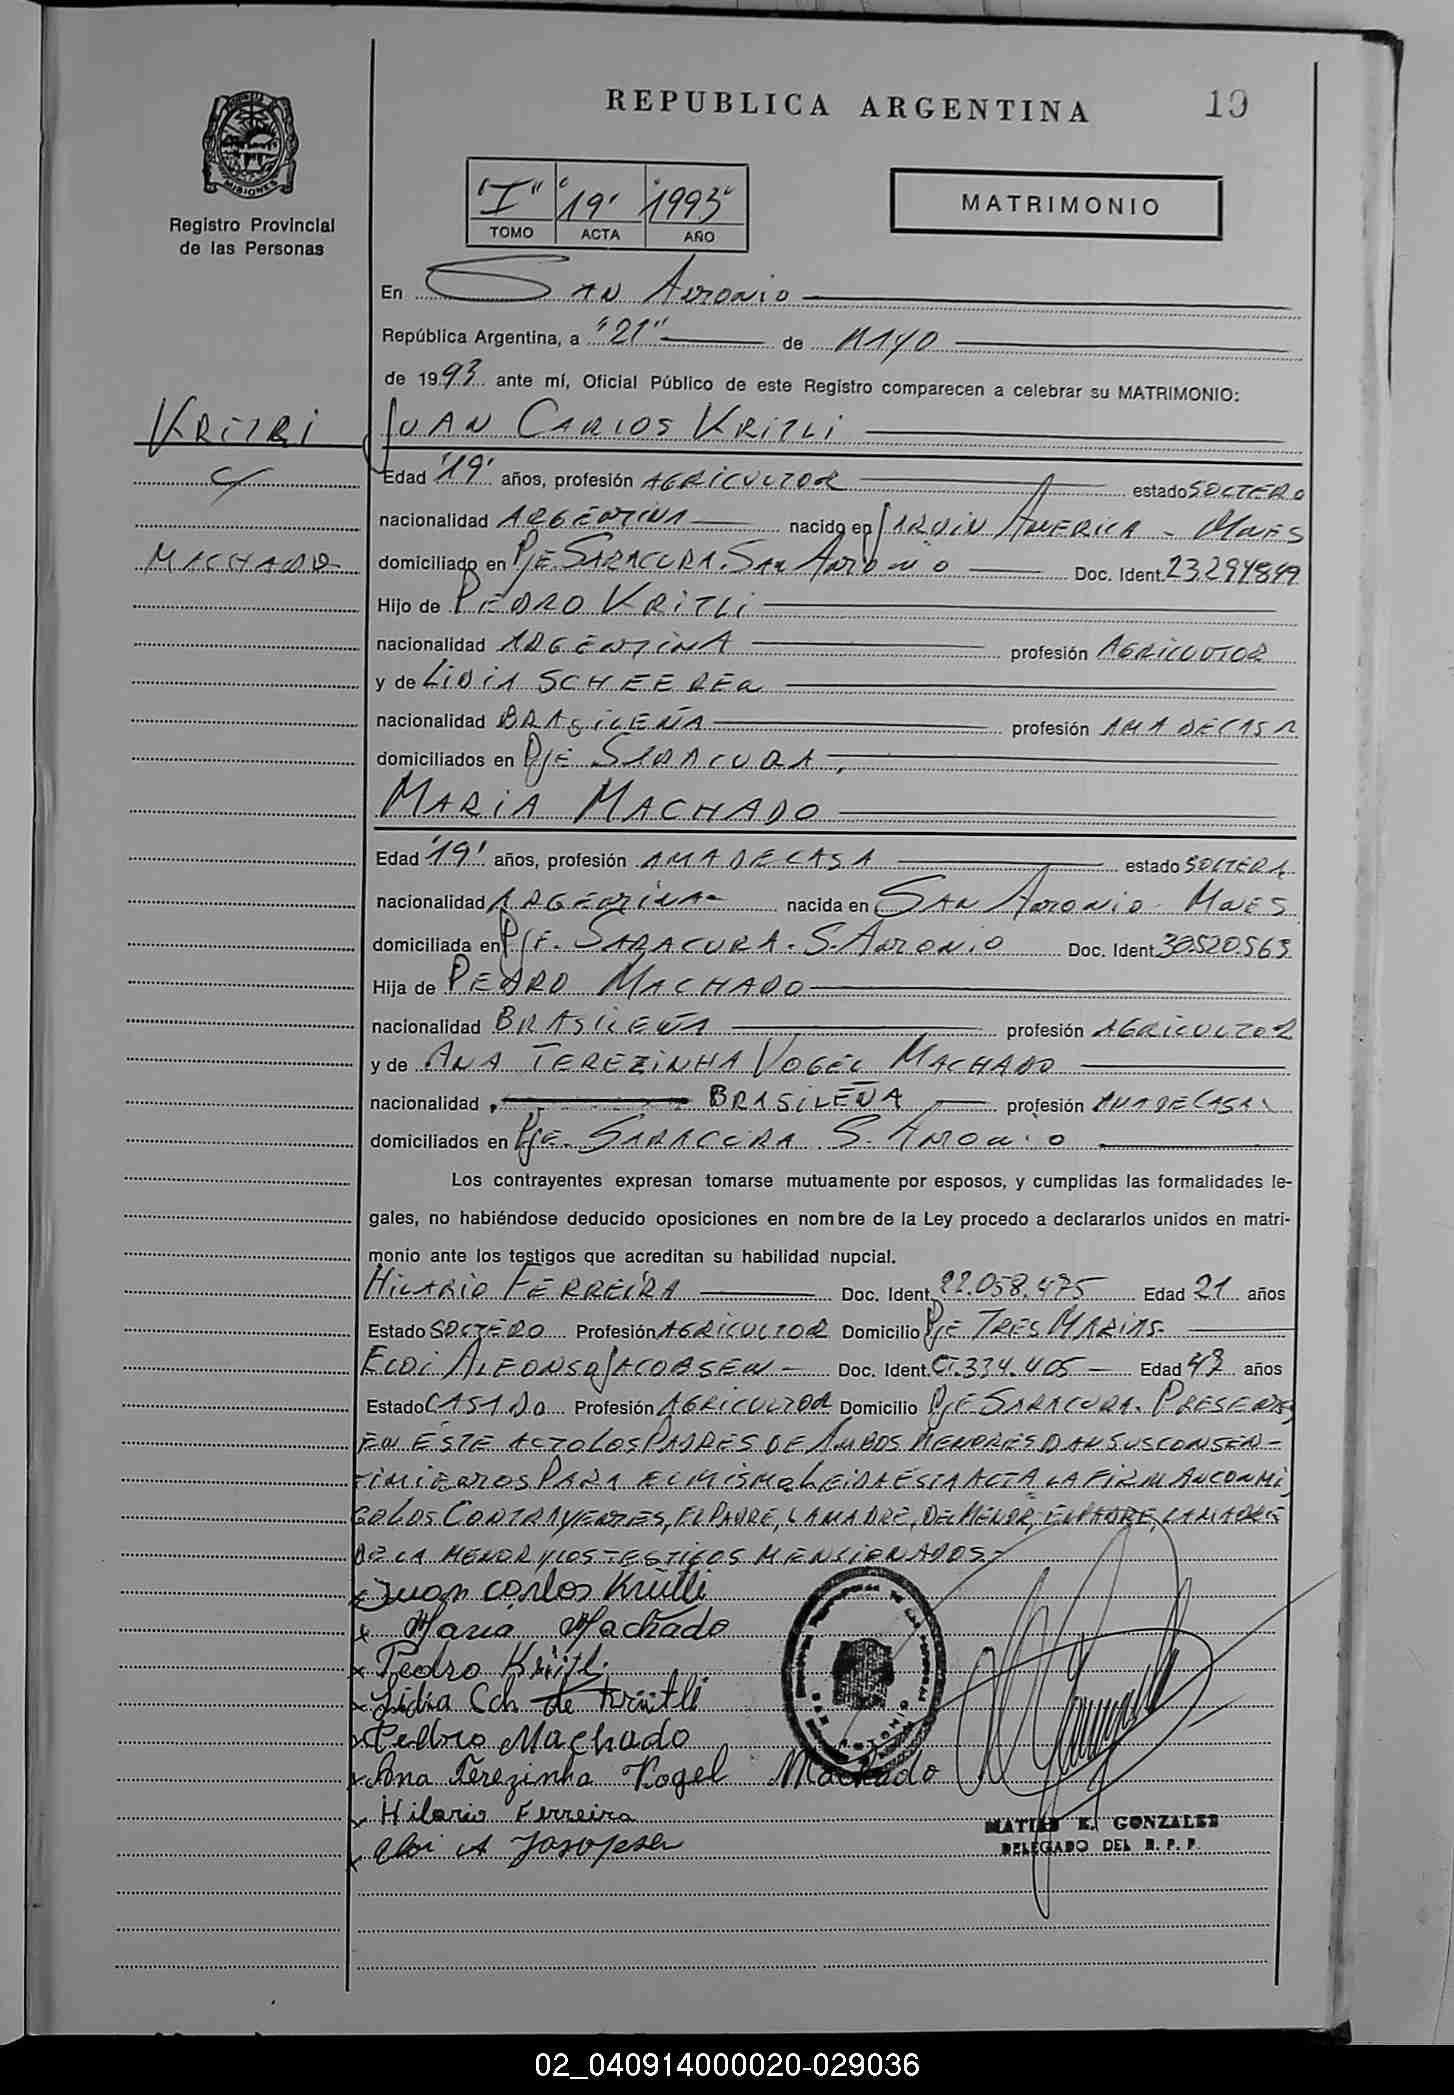 REPUBLICA ARGENTINA
19
MISIONES
Registro Provincial
de las Personas
"I" "19" "1993"
TOMO ACTA AÑO
MATRIMONIO
En SAN ANTONIO
República Argentina, a "21" de MAYO
de 1993 ante mí, Oficial Público de este Registro comparecen a celebrar su MATRIMONIO:
KRITLI
JUAN CARLOS KRITLI
c/
Edad "19" años, profesión AGRICULTOR estado SOLTERO
nacionalidad ARGENTINA nacido en JARDIN AMERICA - MNES
MACHADO
domiciliado en PJE. SARACURA. SAN ANTONIO Doc. Ident. 23.294849
Hijo de PEDRO KRITLI
nacionalidad ARGENTINA profesión AGRICULTOR
y de LIDIA SCHEERER
nacionalidad BRASILEÑA profesión AMA DE CASA
domiciliados en PJE SARACURA,
MARIA MACHADO
Edad "19" años, profesión AMA DE CASA estado SOLTERA
nacionalidad ARGENTINA nacida en SAN ANTONIO - MNES
domiciliada en PJE. SARACURA. S. ANTONIO Doc. Ident. 30.520.563
Hija de PEDRO MACHADO
nacionalidad BRASILEÑA profesión AGRICULTOR
y de ANA TEREZINHA VOGEL MACHADO
nacionalidad BRASILEÑA profesión AMA DE CASA
domiciliados en PJE. SARACURA S. ANTONIO
Los contrayentes expresan tomarse mutuamente por esposos, y cumplidas las formalidades le-
gales, no habiéndose deducido oposiciones en nombre de la Ley procedo a declararlos unidos en matri-
monio ante los testigos que acreditan su habilidad nupcial.
HILARIO FERREIRA Doc. Ident. 22.058.475 Edad 21 años
Estado SOLTERO Profesión AGRICULTOR Domicilio PJE TRES MARIAS
ELOI ALFONSO JACOBSEN Doc. Ident. CI.334.405 Edad 47 años
Estado CASADO Profesión AGRICULTOR Domicilio PJE SARACURA. PRESENTES
EN ESTE ACTO LOS PADRES DE AMBOS MENORES DAN SUS CONSEN-
TIMIENTOS PARA EL MISMO LEIDA ESTA ACTA LA FIRMAN CONMI
GO LOS CONTRAYENTES, EL PADRE, LA MADRE, DEL MENOR, EL PADRE, LA MADRE
DE LA MENOR Y LOS TESTIGOS MENCIONADOS.-
x Juan carlos Krütli
x Maria Machado
x Pedro Krütli
x Lidia Sch de Krütli
x Pedro Machado
x Ana Terezinha Vogel Machado
x Hilario Ferreira
x Eloi A
SAN ANTONIO
MATIAS E. GONZALEZ
DELEGADO DEL R. P. P.
02_040914000020-029036